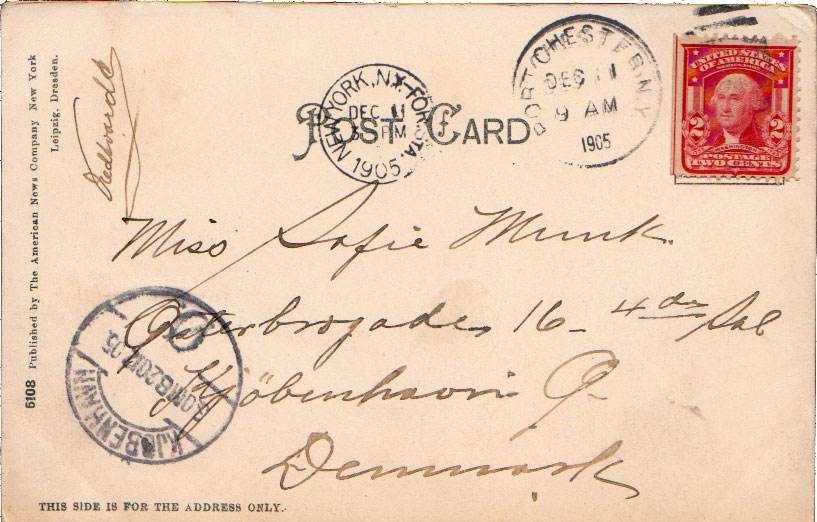 POST CARD
NEW YORK, N.Y.
DEC 11
PM
1905
PORT CHESTER, N.Y.
DEC 11
9 AM
1905
UNITED STATES
OF AMERICA
2 2
POSTAGE
TWO CENTS
5108 Published by The American News Company New York
Leipzig, Dresden.
Miss Sofie Munk.
Østerbrogade 16 - 4de Sal
Kjöbenhavn Ø.
Denmark
KJØBENHAVN
THIS SIDE IS FOR THE ADDRESS ONLY.